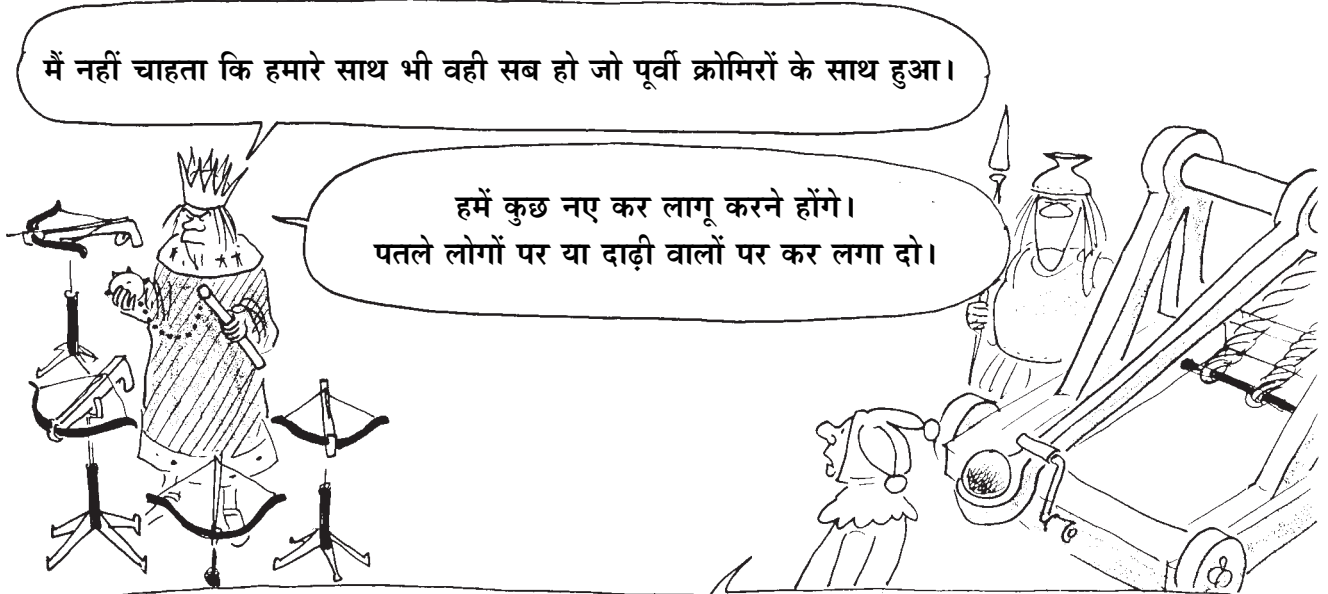 मैं नहीं चाहता कि हमारे साथ भी वही सब हो जो पूर्वी क्रोमिरों के साथ हुआ।
हमें कुछ नए कर लागू करने होंगे।
पतले लोगों पर या दाढ़ी वालों पर कर लगा दो।